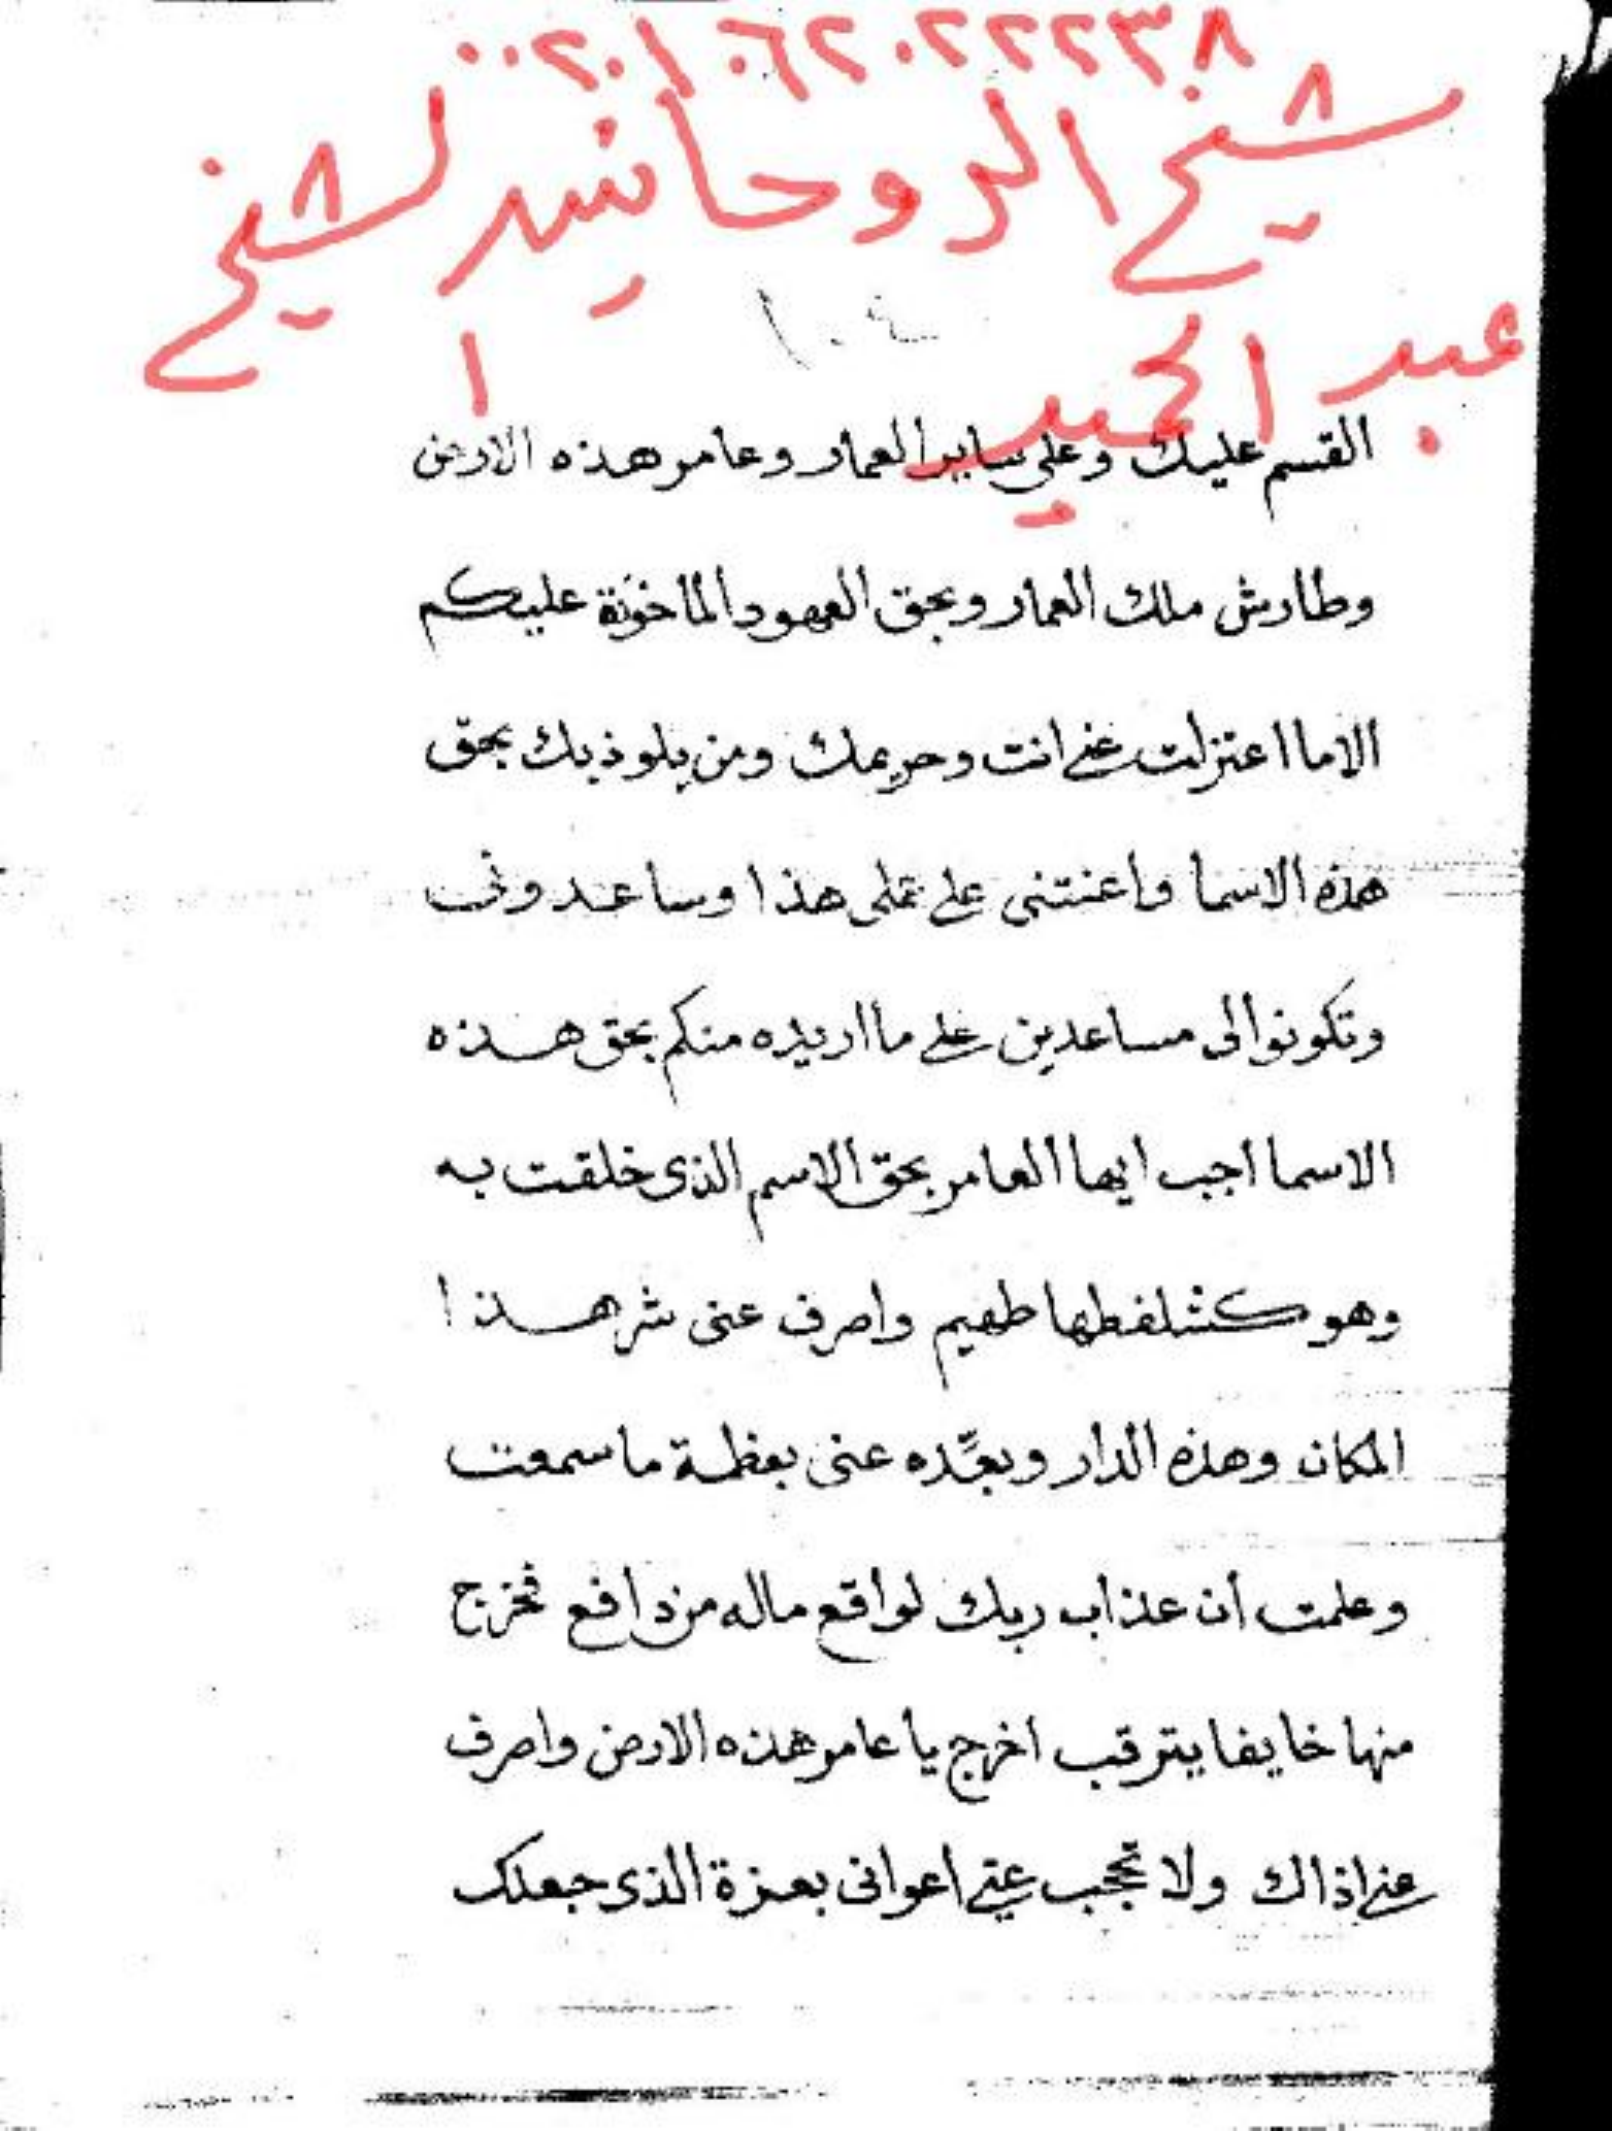 ٠٠٢٠١٠٦٢٠٢٢٢٣٨
شيخ الروحانين الشيخ
عبد الحميد
١٠٤
القسم عليك وعلى ساير العمار وعامر هذه الارض
وطارش ملك العمار وبحق العهود الماخوذة عليكم
الاما اعتزلت عنى انت وحريمك ومن يلوذ بك بحق
هذه الاسما واعنتنى على عملى هذا وساعدونى
وتكونوا لى مساعدين على ما اريده منكم بحق هذه
الاسما اجب ايها العامر بحق الاسم الذى خلقت به
وهو كشلفطها طهيم واصرف عنى شر هذا
المكان وهذه الدار وبعِّده عنى بعظمة ما سمعت
وعلمت أن عذاب ربك لواقع ماله من دافع فخرج
منها خايفا يترقب اخرج يا عامر هذه الارض واصرف
عنى اذاك ولا تحجب عنى اعوانى بعزة الذى جعلك